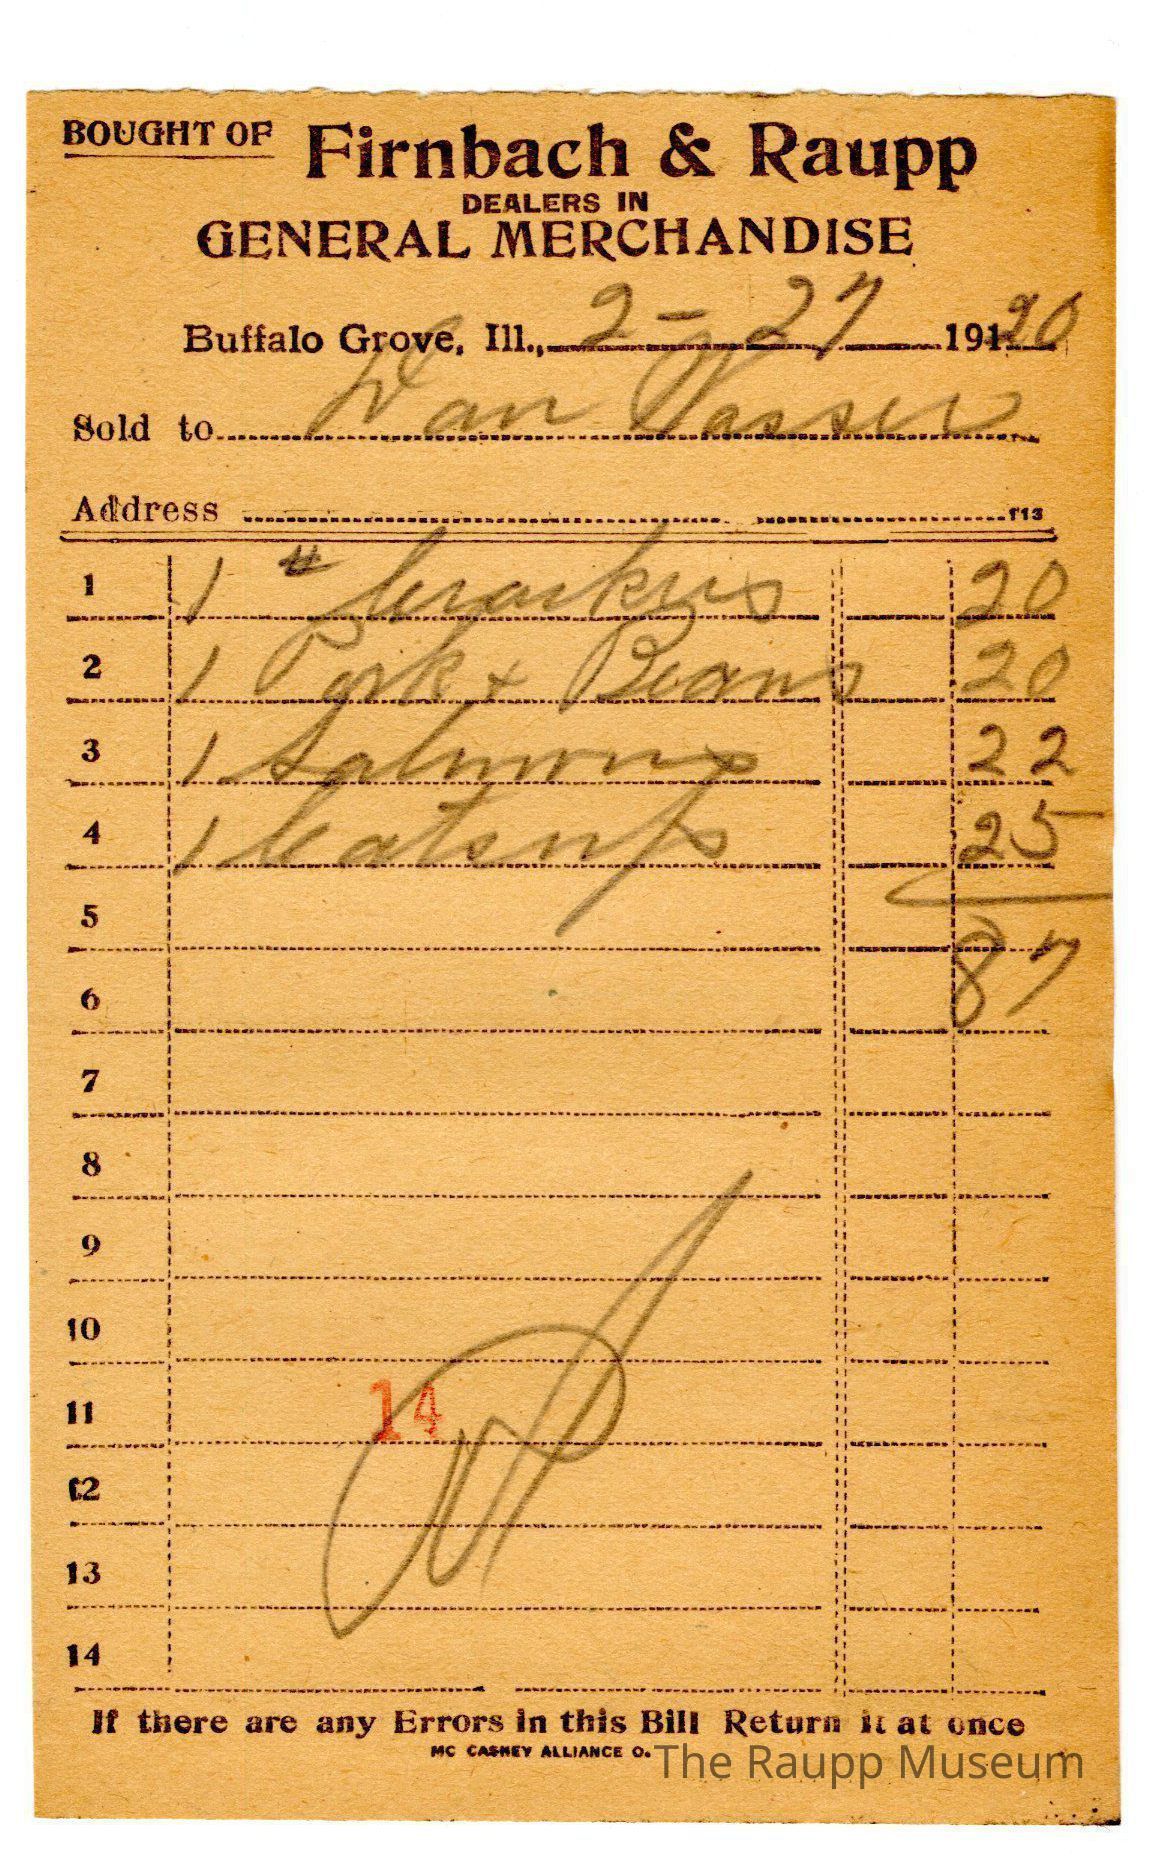 BOUGHT OF Firnbach & Raupp
DEALERS IN
GENERAL MERCHANDISE
Buffalo Grove, Ill., 2-27 191 20
Sold to Dan Vasser
Address 113
1 1 # Crackers 20
2 1 Pork + Beans 20
3 1 Salmons 22
4 1 Catsup 25
5
6 87
7
8
9
10
11 14
12
13
14
If there are any Errors in this Bill Return it at once
MC CASKEY ALLIANCE O.
The Raupp Museum